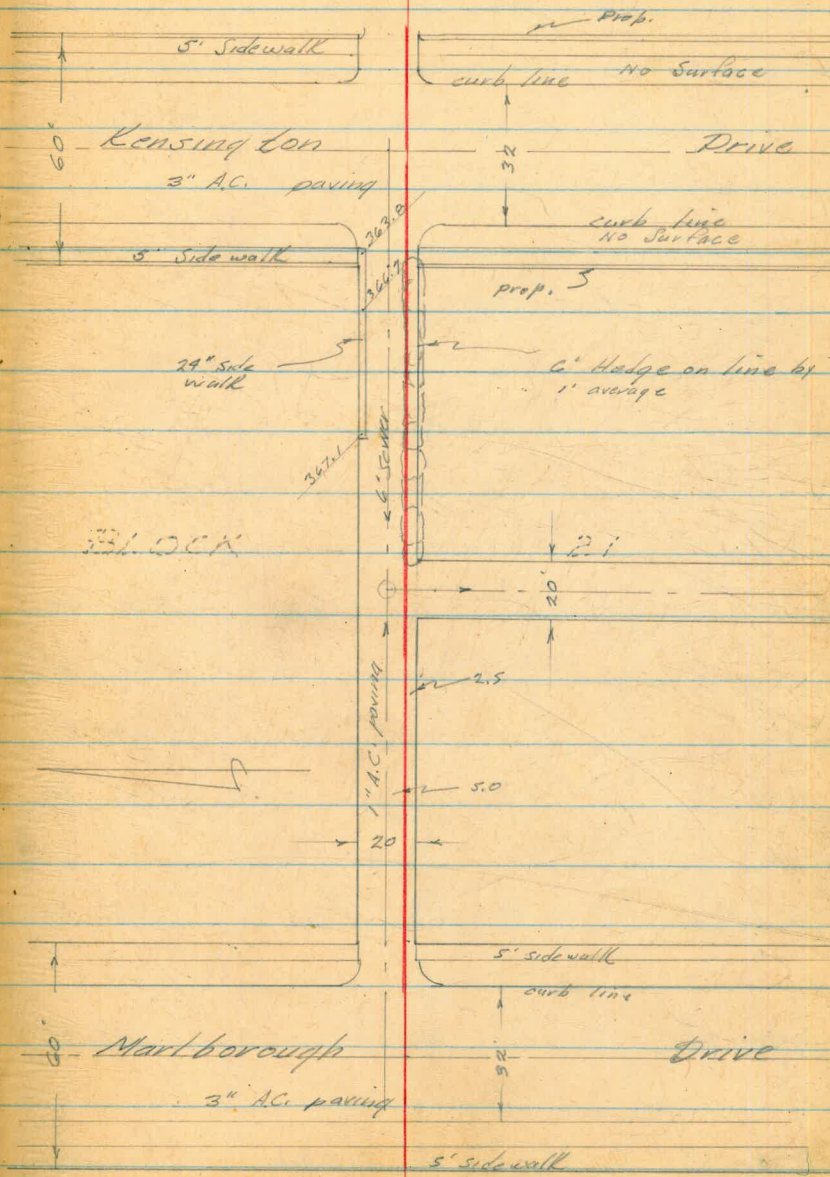 Prop.
5' Sidewalk
curb line
No Surface
60'
Kensington
Drive
32
3" A.C. paving
363.8
curb line
No Surface
5' Side walk
366.7
prop.
24" side
walk
6' Hedge on line by
1' average
6" Sewer
367.1
BLOCK
21
20'
1" A.C. paving
2.5
5.0
20
5' sidewalk
curb line
60'
Marlborough
Drive
32'
3" A.C. paving
5' sidewalk